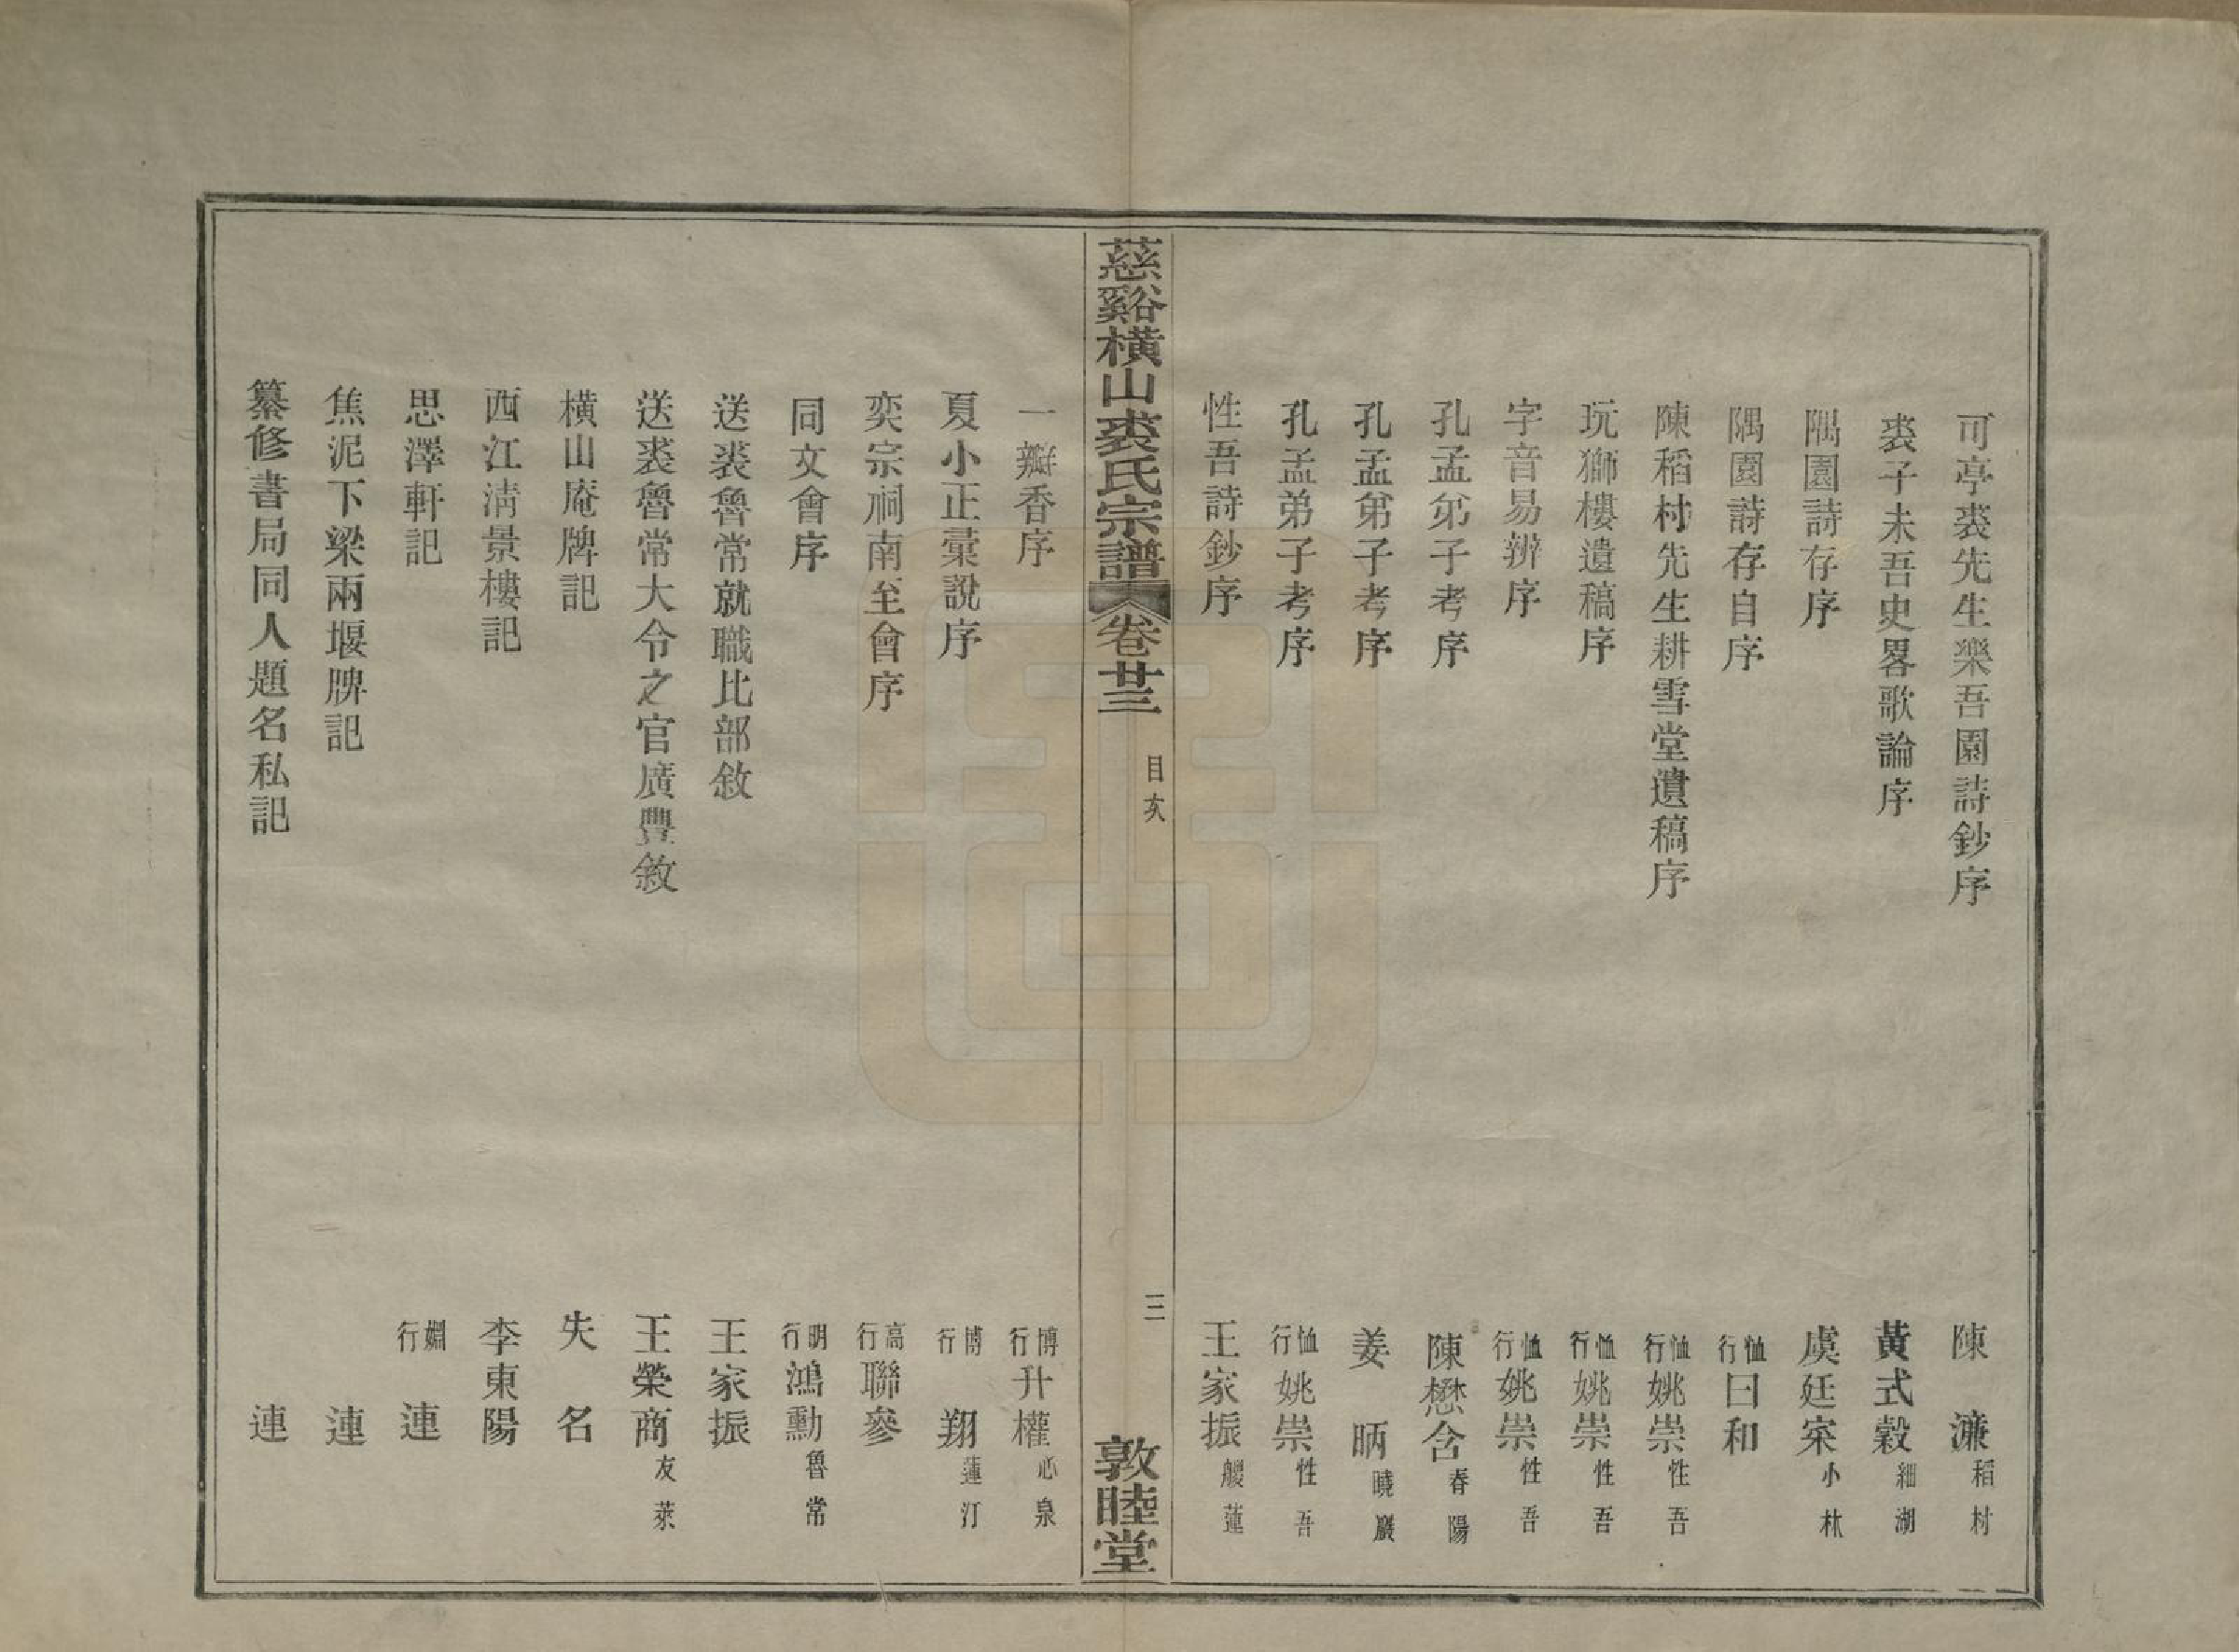 可亭裘先生樂吾園詩鈔序 陳濂稻村
裘子未吾史畧歌論序 黃式穀細湖
隅園詩存序 虞廷寀小林
隅園詩存自序 恤行曰和
陳稻村先生耕雪堂遺稿序 恤行姚崇性吾
玩獅樓遺稿序 恤行姚崇性吾
字音易辨序 恤行姚崇性吾
孔孟弟子考序 陳懋含春陽
孔孟弟子考序 姜昞曉巖
孔孟弟子考序 恤行姚崇性吾
性吾詩鈔序 王家振艭蓮
慈谿橫山裘氏宗譜 卷廿三 目次 三 敦睦堂
一瓣香序 博行升權心泉
夏小正彙說序 博行翔蓮汀
奕宗祠南至會序 高行聯參
同文會序 明行鴻勳魯常
送裘魯常就職比部敘 王家振
送裘魯常大令之官廣豐敘 王榮商友萊
橫山庵牌記 失名
西江清景樓記 李東陽
思澤軒記 嫺行連
焦泥下梁兩堰牌記 連
纂修書局同人題名私記 連